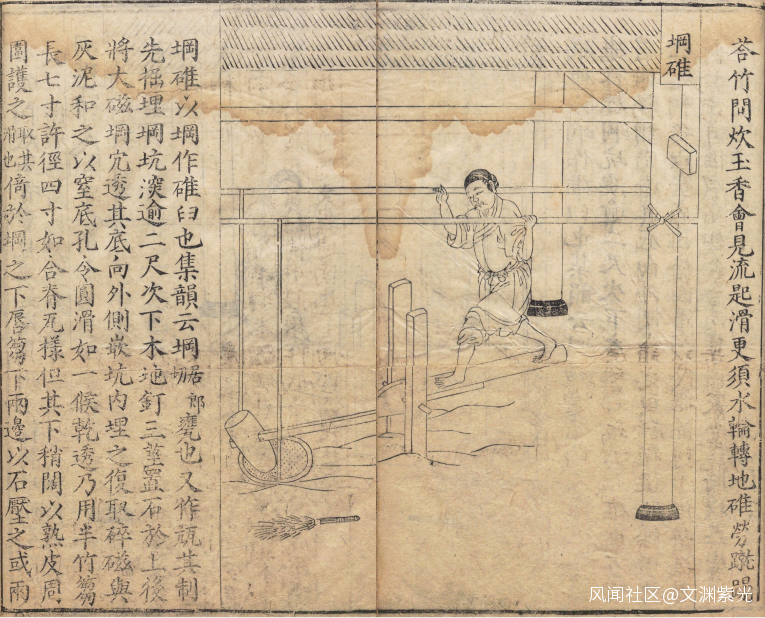 苔竹問炊玉香會見流匙滑更須水輪轉地碓勞蹴
堈碓
堈碓以堈作碓臼也集韻云堈居郎切甕也又作瓨其制
先掘埋堈坑深逾二尺次下木地釘三莖置石於上後
將大磁堈穴透其底向外側嵌坑内埋之復取碎磁與
灰泥和之以窒底孔令圓滑如一候乾透乃用半竹篛
長七寸許徑四寸如合脊瓦樣但其下稍闊以熟皮周
圍護之取其滑也倚於堈之下唇篛下兩邊以石壓之或兩
风闻社区@文渊紫光